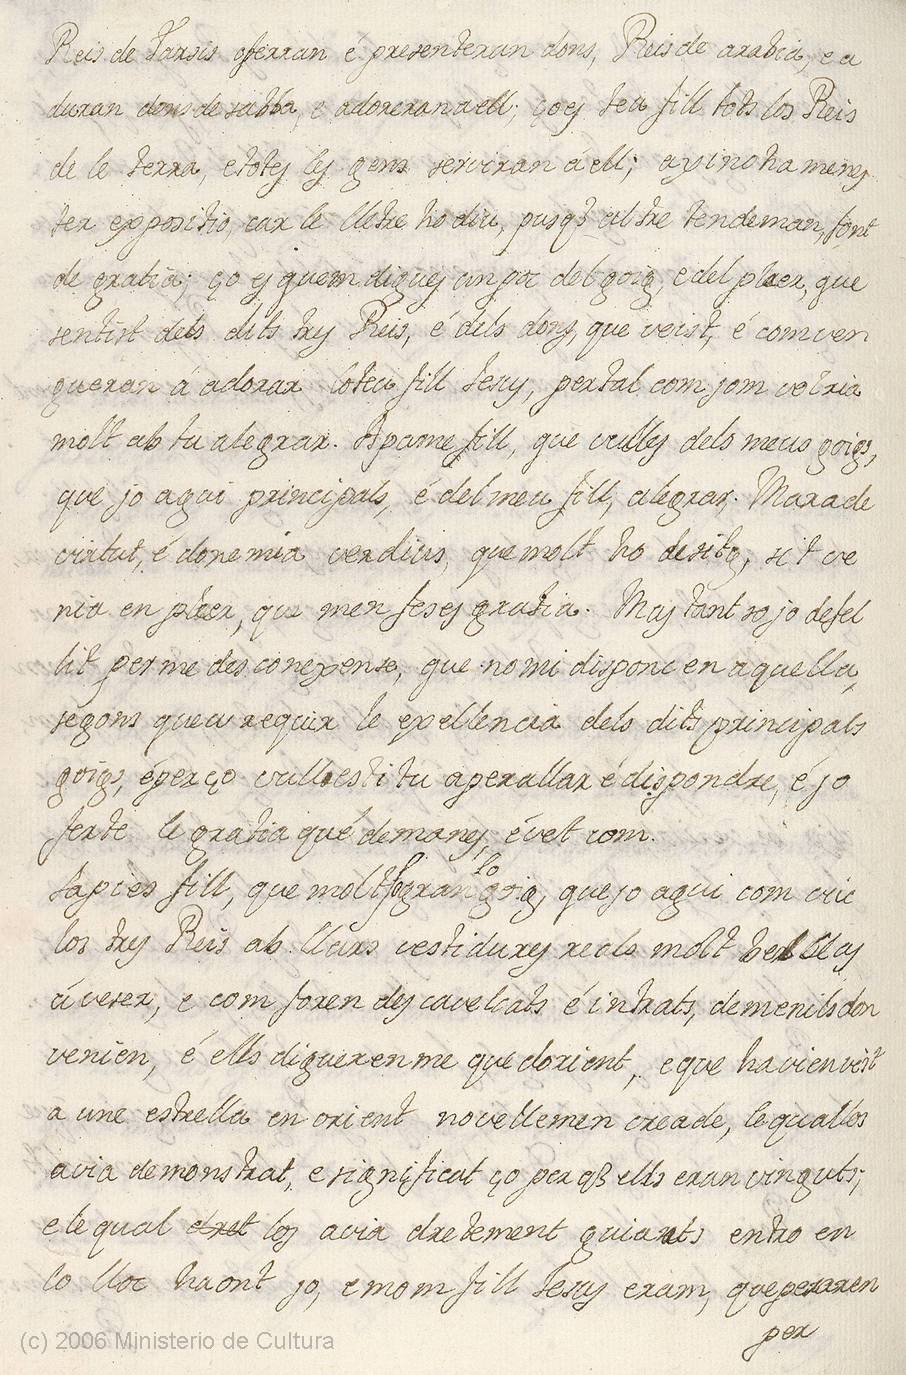 Reis de Tarsis oferran é presenteran dons, Reis de arabia, e a
duran dons de sabba, e adoreran a ell; ço es teu fill tots los Reis
de le terra, e totes les gens serviran á ell; axi no ha menes
ter expositio, car le lletre ho diu, pusq̃ altre tendeman, font
de gratia; ço es quem digues un poc del goig, e del plaer, que
sentist dels dits tres Reis, é dels dons, que veist, é com ven
gueran á adorar lo teu fill Jesus, per tal com jom volria
molt ab tu alegrar. Apame fill, que vulles dels meus goigs,
que jo agui principals, é del meu fill, alegrar. Mara de
virtut, é done mia verdius, que molt ho desitg, sit ve
nia en plaer, que men feses gratia. Mas tant so jo defel
lit per me desconexense, que no mi disponc en aquella,
segons que u requir le exellencia dels dits principals
goigs, é per ço vulles ti tu aperallar é dispondre, é jo
ferte le gratia qué demanes, évet com.
Sapies fill, que molt fo gran lo goig, que jo agui com viu
los tres Reis ab llurs vestidures reals molt belles
á veser, e com foren descavelcats é intrats, demenils don
venien, é ells digueren me que dorient, e que havien vist
a une estrella en orient novellemen creade, le qual los
avia demonstrat, e significat ço per q̃ ells eran vinguts;
e le qual dret los avia dretement guiats entro en
lo lloc haont jo, e mom fill Jesus eram, que peraren
per
(c) 2006 Ministerio de Cultura